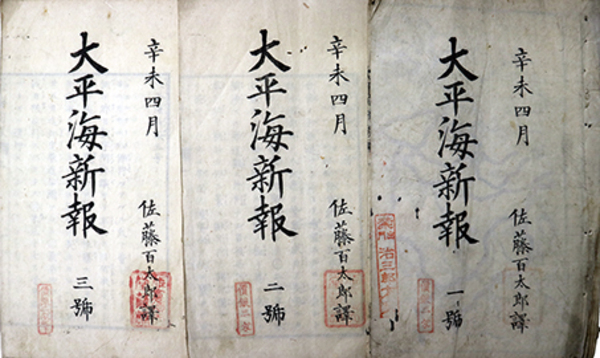 辛未四月 佐藤百太郎譯
大平海新報 一號
辛未四月 佐藤百太郎譯
大平海新報 二號
辛未四月 佐藤百太郎譯
大平海新報 三號